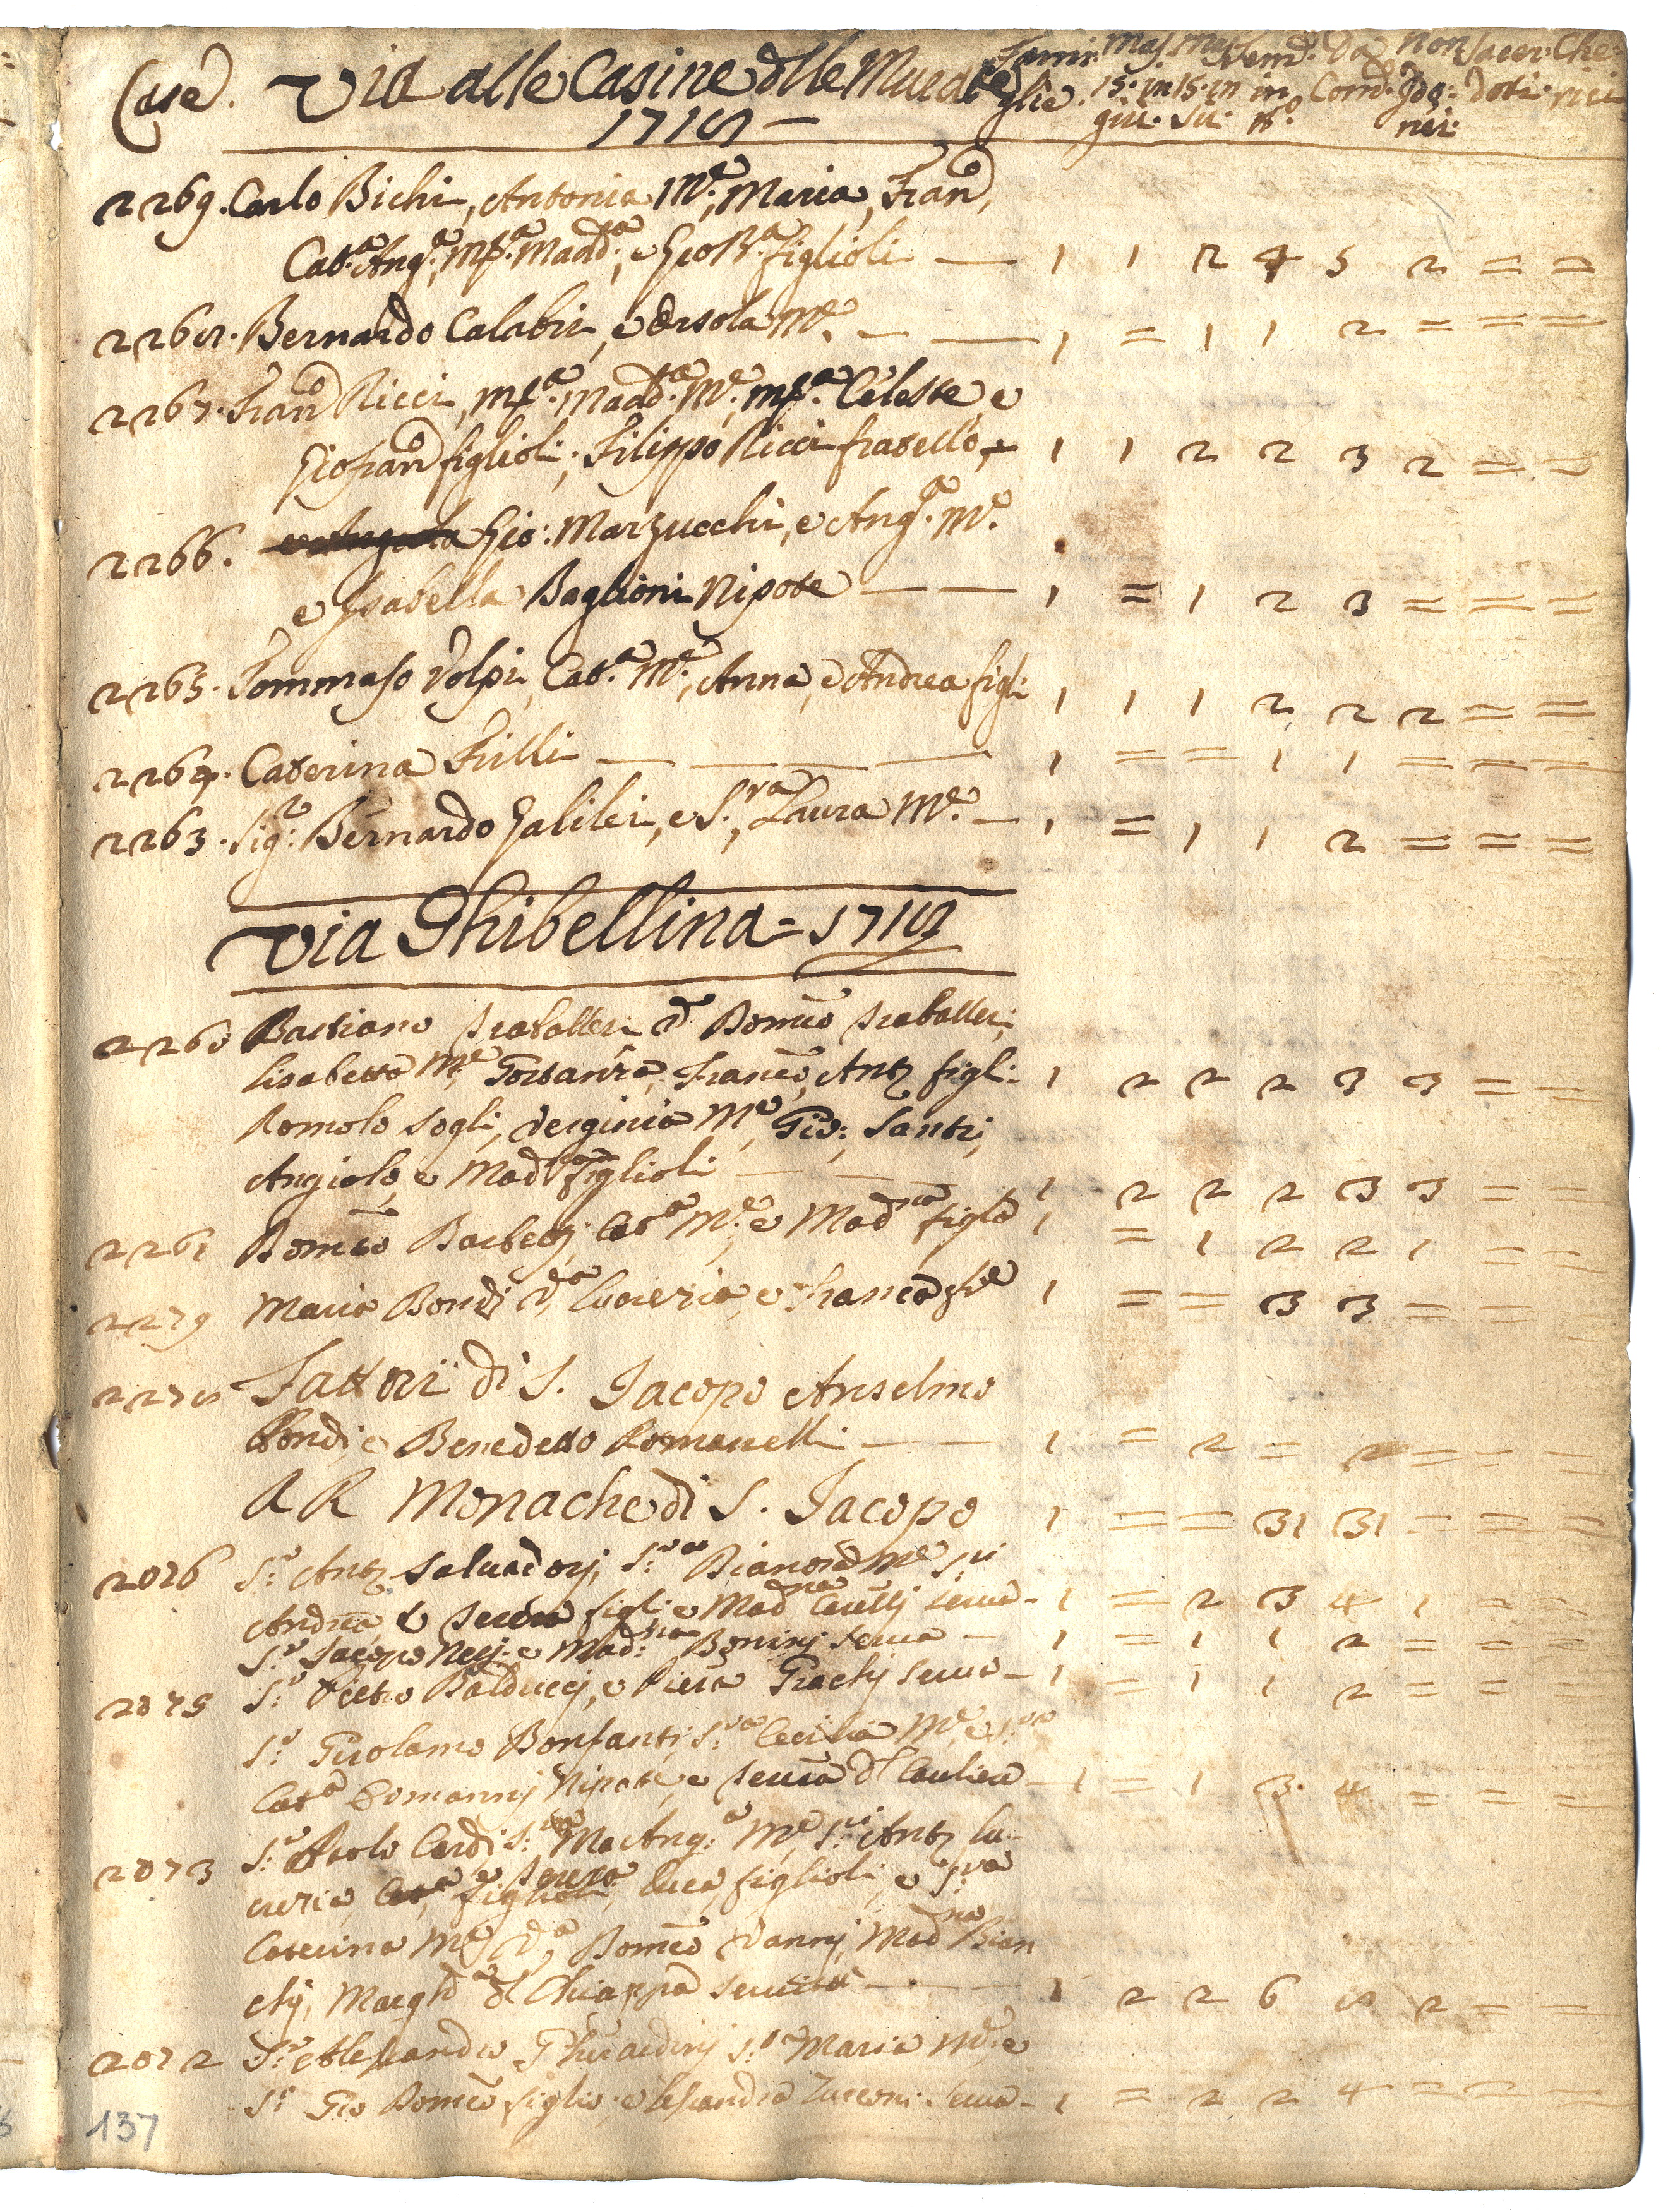 Case. Via alle Casine dlle Murate
1718 —
Fami: Mas. Mas. Fem. Da Non Sacer: Che:
glie. 15. in 15. in in Com: Ido: doti. rici
giu. su: n.o nei:
2269. Carlo Bichi, Antonia M.e, Maria, Fran.o,
Cat.a Ang.a, M.a Madd.a, e Gio B.a figlioli — 1 1 2 4 5 2 = =
2268. Bernardo Calabri, e Orsola M.e — — 1 = 1 1 2 = = =
2267. Fran.o Ricci, M.a Madd.a M.e, M.a Celeste, e
Giofran.o figlioli; Filippo Ricci fratello, — 1 1 2 2 3 2 = =
2266. Gio: Marzucchi, e Ang.a M.e
e Isabella Baglioni Nipote — — 1 = 1 2 3 = = =
2265. Tommaso Volpi, Cat.a M.e, Anna, e Andrea figli 1 1 1 2 2 2 = =
2264. Caterina Frilli — — — — 1 = = 1 1 = = =
2263. Sig.r Bernardo Galilei, e S.ra Laura M.e — 1 = 1 1 2 = = =
Via Ghibellina = 1718
2260 Bastiano d Domco
Lisabetta M.e Gostanza, Franco, Ant.o figli. 1 2 2 2 3 3 = =
Romolo Sogli, Verginia M.e Gio: Santi,
Angiolo, e Mad.a figlioli — — 1 2 2 2 3 3 = =
2261 Domco Cat.a M.e, e Mad.na figla 1 = 1 2 2 1 = =
2279 Maria Bondi V.a Lucrezia, e Franca 1 = = 3 3 = =
2278 Fattori di S. Jacopo Anselmo
Bondi, e Benedetto Romanelli — — 1 = 2 = 2 = = =
R R Monache di S. Jacopo 1 = = 31 31 = = =
2076 S.r Ant.o Salvadorj, S.ra Dianora M.e S.ri
Andrea figli, e Mad.na serva — 1 = 2 3 4 1 = =
S.r Jacopo Nerj, e Mad.na Boninj serva — 1 = 1 1 2 = = =
2075 S.r Pietro Balduccj, e Piera serva — 1 = 1 1 2 = = =
S.r Girolamo Bonfanti, S.ra Cecilia M.e, e S.ra
Cat.a Nipote, e — 1 = 1 3 4 = = =
2073 S.r Paolo Cardi S.ra M.a Ang.a M.e S.ri Ant.o Lu-
crezia, Luca figlioli, e S.ra
Caterina M.e V.a Domco Vannj, Mad.na Bian
chj, Margh.a d Chiappa — — 1 2 2 6 8 2 = =
2072 S.r Alessandro Gherardinj S.ra Maria M.e, e
S.r Gio Domco figlio, e Lesandra Zucconi serva — 1 = 2 2 4 = = =
137